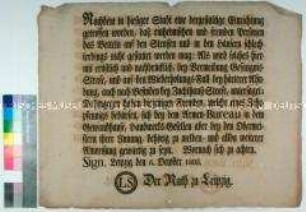 Nachdem in hiesiger Stadt eine dergestaltige Einrichtung
getroffen worden, daß einheimischen und fremden Personen
das Betteln auf den Strassen und in den Häusern schlech-
terdings nicht gestattet werden mag: Als wird solches hier-
mit ernstlich und nachdrücklich, bey Vermeidung Gefängniß-
Strafe, und auf den Wiederholungs-Fall bey härterer Ahn-
dung, auch nach Befinden bey Zuchthaus-Strafe, untersaget.
Dahingegen haben diejenigen Fremden, welche eines Zehr-
pfennigs bedürfen, sich bey dem Armen-Bureau in dem
Gewandhause, Handwercks-Gesellen aber bey den Obermei-
stern ihrer Innung, behörig zu melden, und allda weiterer
Anweisung gewärtig zu seyn. Wornach sich zu achten.
Sign. Leipzig, den 6. October 1803.
LS Der Rath zu Leipzig.